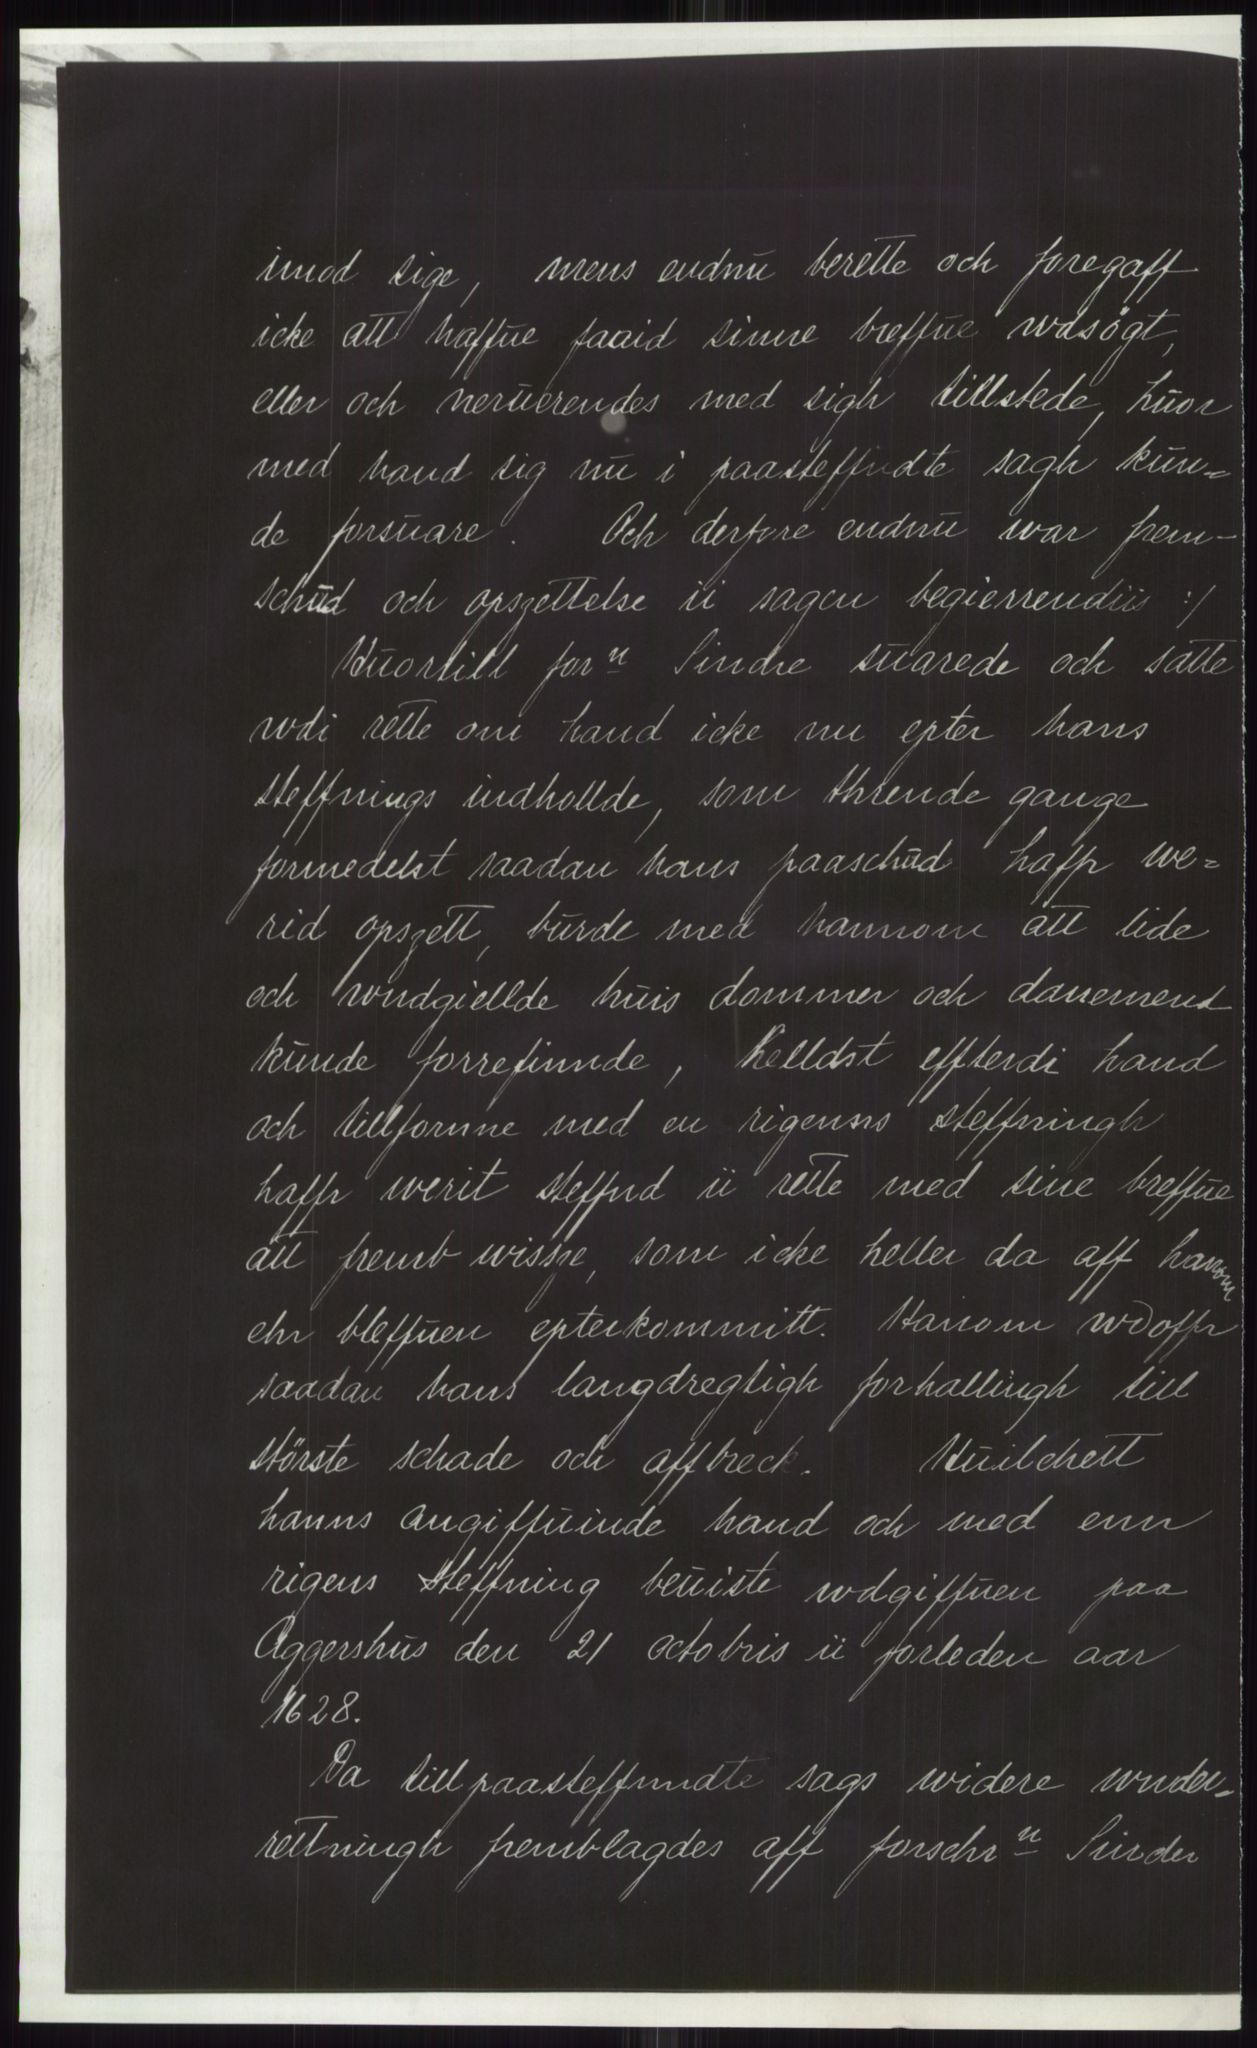 imod sige, mens endnu berette och foregaff
icke att haffue faaid sinne breffue wdsögt,
eller och neruerendes med sigh tillstede, huor
med hand sig nu i paasteffndte sagh kun=
de forsuare. Och derfore endnu war frem-
schud och opszettelse ii sagen begierrendiis :/
Huortill forn Sindre suarede och satte
wdi rette om hand icke nu epter hans
steffnings indhollde, som thrende gange
formedelst saadan hans paaschud haffr we=
rid opszett, burde med hannom att lide
och wndgiellde huis dommer och danemend
kunde forrefinnde, helldst effterdi hand
och tillfornne med en rigenss steffningh
haffr werit steffnd ii rette med sine breffue
att fremb wissze, som icke heller da aff hanom
ehr bleffuen epterkommitt. Hanom wdoffr
saadan hans langdregtigh forhallingh till
störste schade och affbreck. Huilchett
hanns angiffuinde hand och med enn
rigens steffning beuiste wdgiffuen paa
Aggershus den 21 octobris ii forleden aar
1628.
Da till paasteffnndte sags widere wnder=
rettningh fremblagdes aff forschrn Sinder